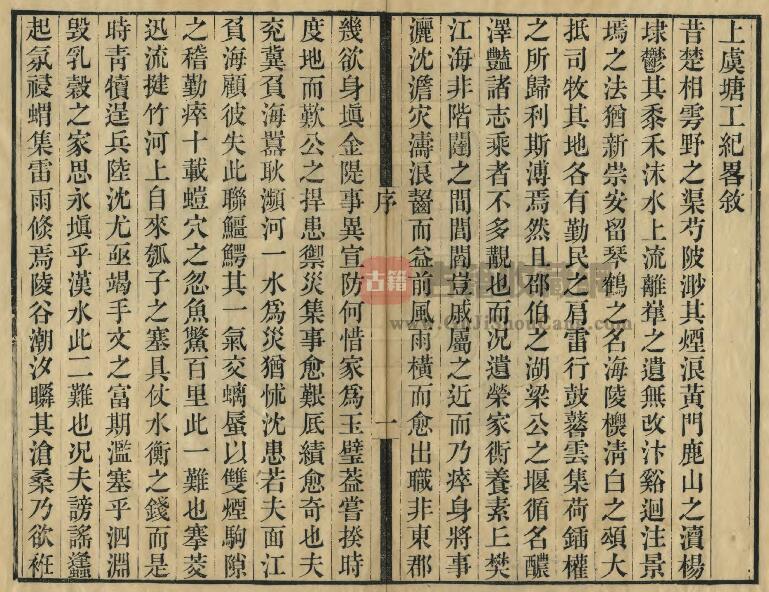 上虞塘工紀畧敘
昔楚相雩野之渠芍陂渺其煙浪黃門鹿山之瀆楊
埭鬱其黍禾沫水上流離犖之遺無改汴谿迴注景
焉之法猶新崇安留琴鶴之名海陵樱淸白之頌大
抵司牧其地各有勤民之肩雷行鼓鼛雲集荷鍤權
之所歸利斯溥焉然且邵伯之湖梁公之堰循名醲
澤豔諸志乘者不多覯也而況遺榮家衖養素上樊
江海非階闥之間閭閻豈戚屬之近而乃瘁身將事
灑沈澹灾濤浪齧而益前風雨橫而愈出職非東郡
序
一
幾欲身塡金隄事異宣防何惜家爲玉璧葢嘗揆時
度地而歎公之捍患禦災集事愈艱厎績愈奇也夫
兖冀負海嚣耿瀕河一水爲災猶怵沈患若夫面江
負海顧彼失此聯鱷鰐其一氣交螭蜃以雙煙駒隙
之稽勤瘁十載螘穴之忽魚鱉百里此一難也搴茭
迅流揵竹河上自來瓠子之塞具仗水衡之錢而是
時靑犢逞兵陸沈尤亟竭手文之富期濫塞乎泗淵
毀乳穀之家思永塡乎漢水此二難也況夫謗謠蠭
起氛祲蝟集雷雨倏焉陵谷潮汐瞬其滄桑乃欲衽
古籍
www.GuJiShouCang.com